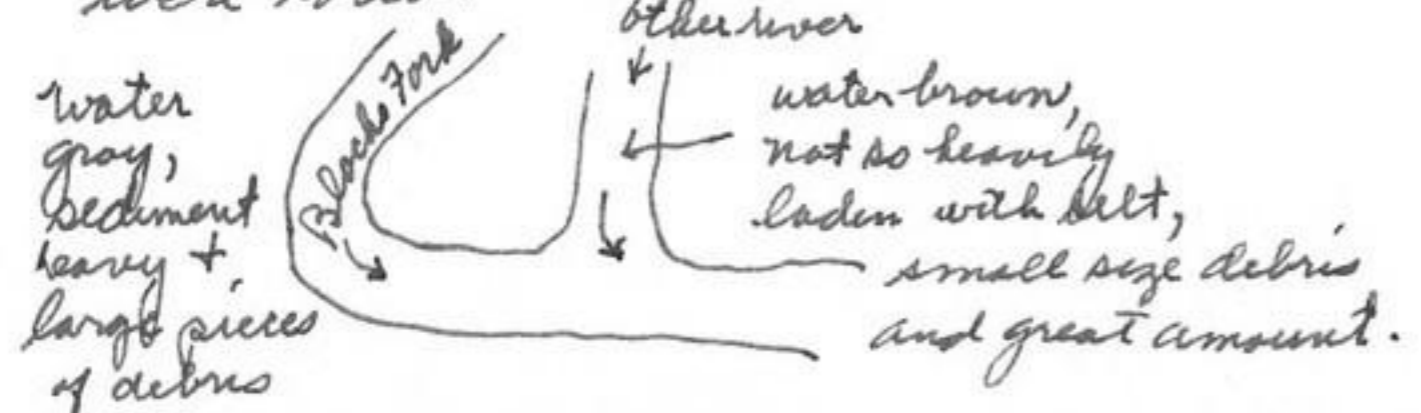 other river
Blacks Fork
water
gray,
sediment
heavy +
large pieces
of debris
water brown,
not so heavily
laden with silt,
small size debris
and great amount.